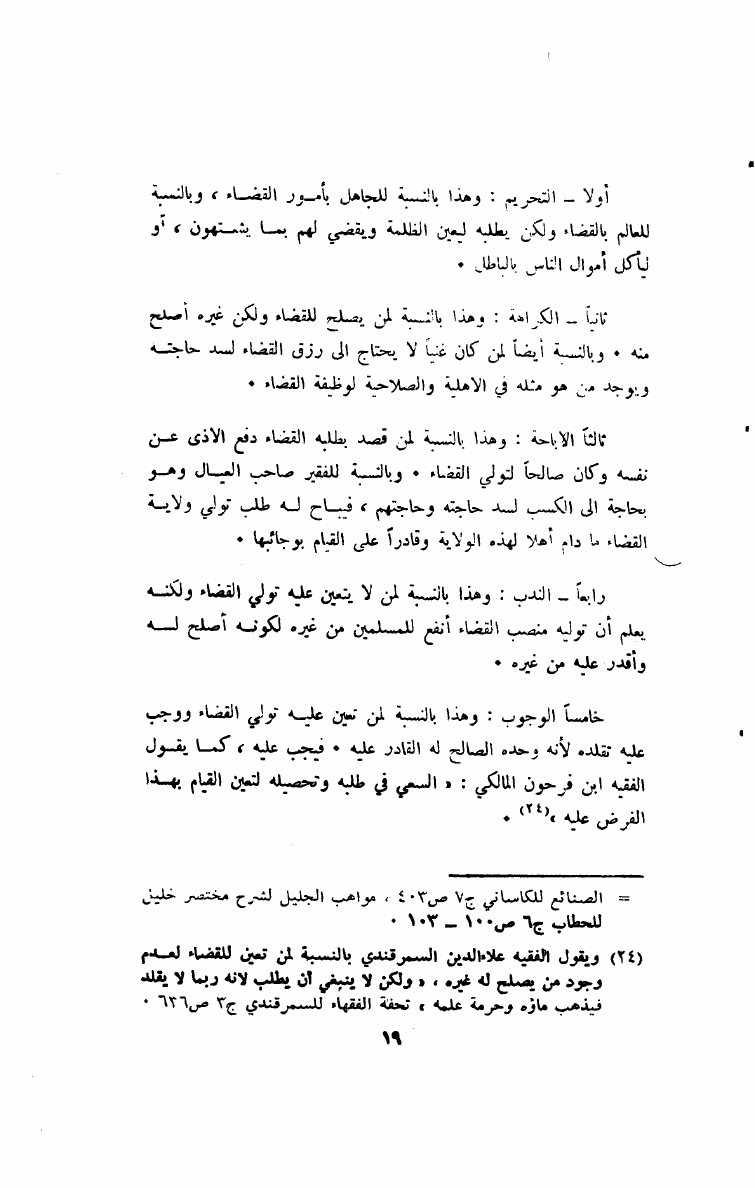 أولا ــ التحريم : وهذا بالنسبة للجاهل بأمـور القضـاء ، وبالنسبة
للعالم بالقضاء ولكن يطلبه ليعين الظلمة ويقضي لهم بمـا يشـتهون ، أو
ليأكل أموال الناس بالباطل .
ثانياً ــ الكراهة : وهذا بالنسبة لمن يصلح للقضاء ولكن غيره أصلح
منه . وبالنسبة أيضاً لمن كان غنياً لا يحتاج الى رزق القضاء لسد حاجتـه
ويوجد من هو مثله في الاهلية والصلاحية لوظيفة القضاء .
ثالثاً الاباحة : وهذا بالنسبة لمن قصد بطلبه القضاء دفع الاذى عـن
نفسه وكان صالحاً لتولي القضاء . وبالنسبة للفقير صاحب العيـال وهـو
بحاجة الى الكسب لسد حاجته وحاجتهم ، فيبـاح لـه طلب تولي ولايـة
القضاء ما دام أهلا لهذه الولاية وقادراً على القيام بوجائبها .
رابعاً ــ الندب : وهذا بالنسبة لمن لا يتعين عليه تولي القضاء ولكنـه
يعلم أن توليه منصب القضاء أنفع للمسلمين من غيره لكونـه أصلح لـه
وأقدر عليه من غيره .
خامساً الوجوب : وهذا بالنسبة لمن تعين عليـه تولي القضاء ووجب
عليه تقلده لأنه وحده الصالح له القادر عليه . فيجب عليه ، كمـا يقـول
الفقيه ابن فرحون المالكي : « السعي في طلبه وتحصيله لتعين القيام بهـذا
الفرض عليه »(٢٤) .
= الصنائع للكاساني ج٧ ص٤٠٣ ، مواهب الجليل لشرح مختصر خليل
للحطاب ج٦ ص١٠٠ ــ ١٠٣ .
(٢٤) ويقول الفقيه علاءالدين السمرقندي بالنسبة لمن تعين للقضاء لعـدم
وجود من يصلح له غيره ، « ولكن لا ينبغي أن يطلب لانه ربما لا يقلد
فيذهب ماؤه وحرمة علمه » تحفة الفقهاء للسمرقندي ج٣ ص٦٣٦ .
١٩